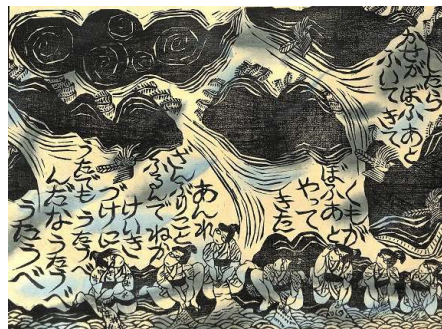 したらこ
かぜがぼふあと
ふいてきて
くもが
ぼふあと
やって
きた
あんれ
ざんぶりこと
ふるんでねか
けいき
づけに
うたでも うたうべ
んだな うたうべ
うたうべ